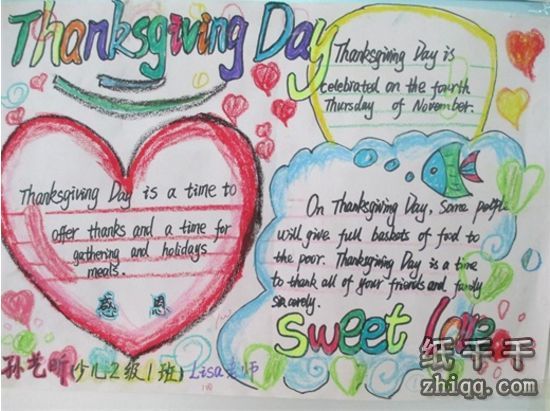 Thanksgiving Day
Thanksgiving Day is
celebrated on the fourth
Thursday of November.
Thanksgiving Day is a time to
offer thanks and a time for
gathering and holidays
meals.
感恩
On Thanksgiving Day, Some people
will give full baskets of food to
the poor. Thanksgiving Day is a time
to thank all of your friends and family
sincerely.
Sweet Love
孙艺昕(少儿2级1班) Lisa老师
纸千千
zhiqq.com